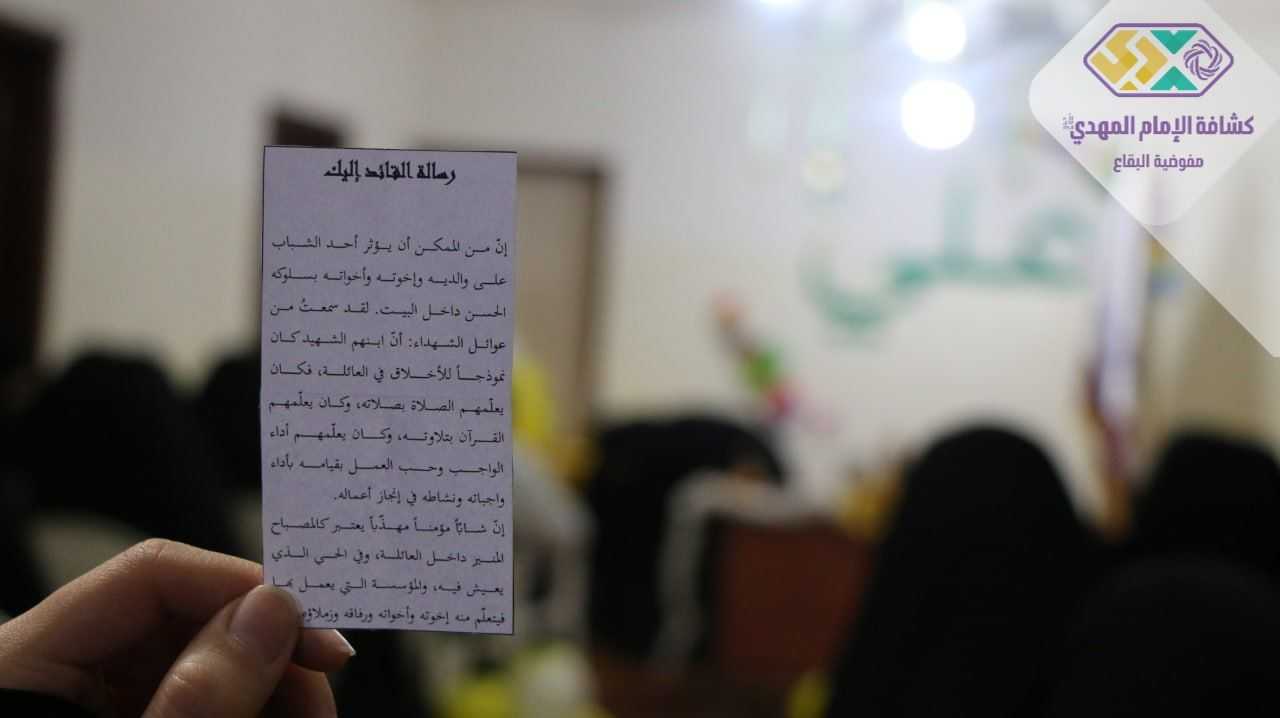 كشافة الإمام المهدي
مفوضية البقاع
علي
رسالة القائد إليك
إنّ من الممكن أن يؤثر أحد الشباب
على والديه وإخوته وأخواته بسلوكه
الحسن داخل البيت. لقد سمعتُ من
عوائل الشهداء: أنّ ابنهم الشهيد كان
نموذجاً للأخلاق في العائلة، فكان
يعلّمهم الصلاة بصلاته، وكان يعلّمهم
القرآن بتلاوته، وكان يعلّمهم أداء
الواجب وحب العمل بقيامه بأداء
واجباته ونشاطه في إنجاز أعماله.
إنّ شابّاً مؤمناً مهذّباً يعتبر كالمصباح
المنير داخل العائلة، وفي الحي الذي
يعيش فيه، والمؤسسة التي يعمل بها
فيتعلّم منه إخوته وأخواته ورفاقه